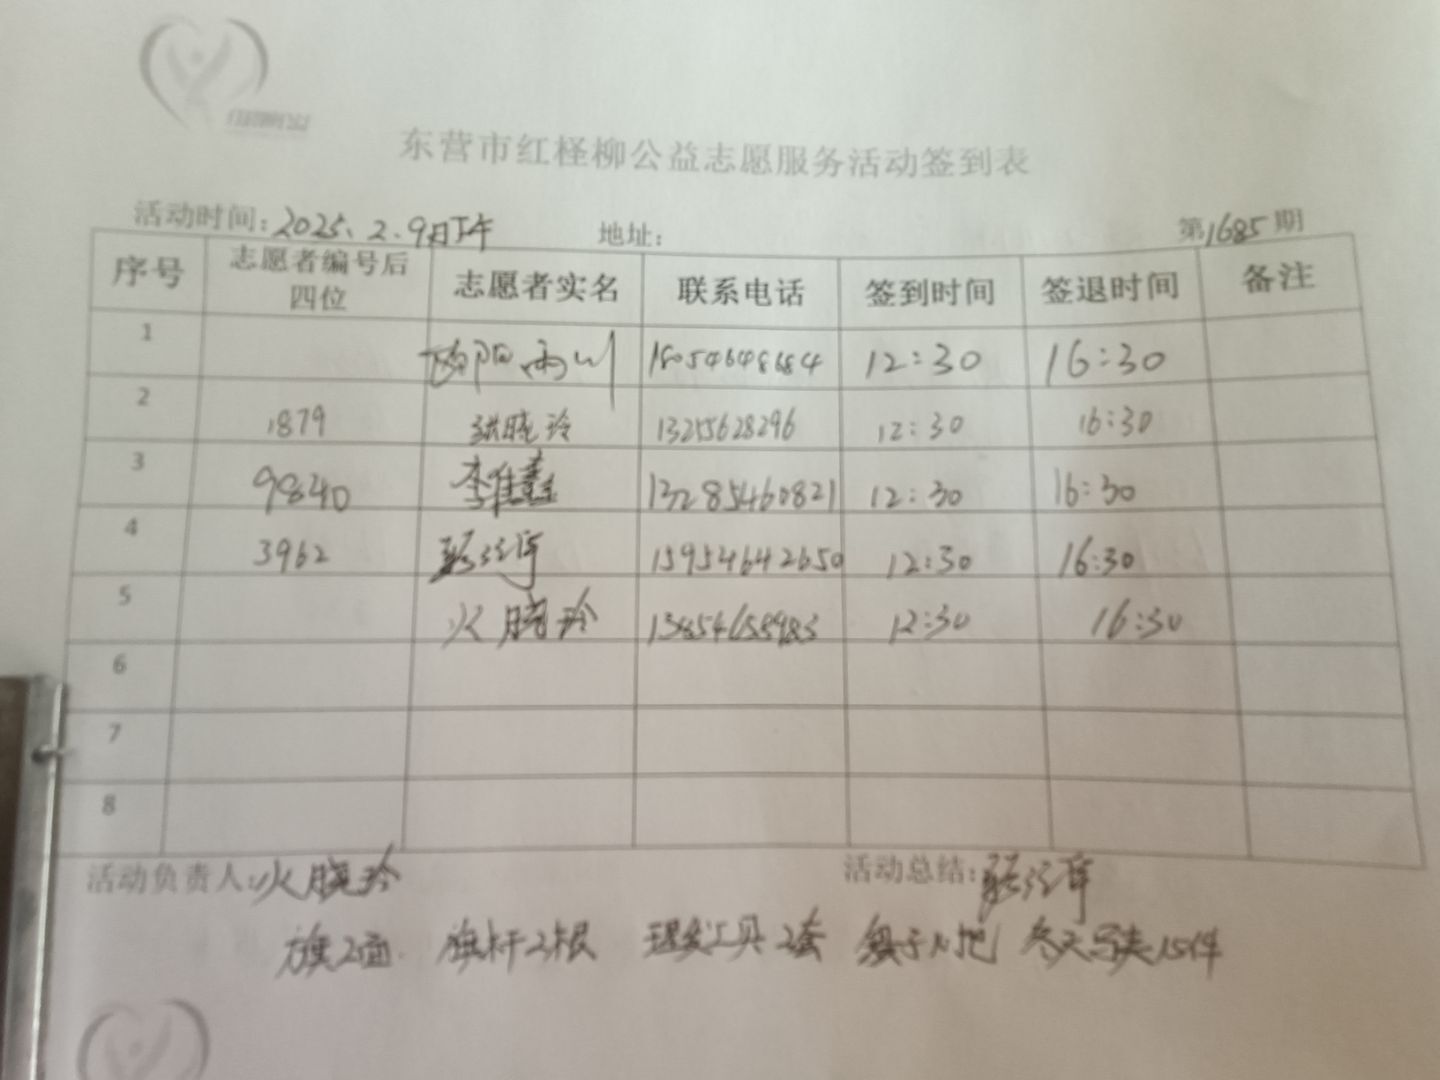 东营市红柽柳公益志愿服务活动签到表
活动时间:2025.2.9日下午 地址: 第1685期
序号 志愿者编号后四位 志愿者实名 联系电话 签到时间 签退时间 备注
1 欧阳雨川 18054648684 12:30 16:30
2 1879 洪晓玲 13215628296 12:30 16:30
3 9840 李维鑫 13285460821 12:30 16:30
4 3962 15954642650 12:30 16:30
5 火晓玲 12:30 16:30
6
7
8
活动负责人:火晓玲 活动总结:
旗2面 旗杆2根 理发工具2套 凳子 把 冬天马夹15件